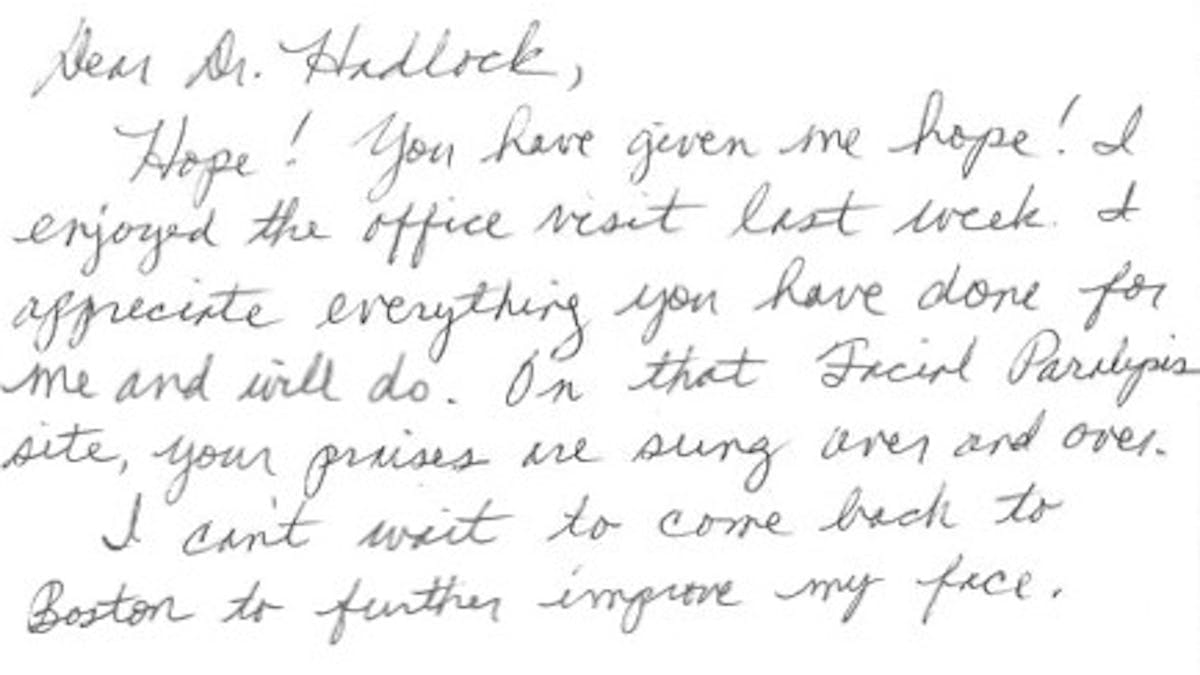 Dear Dr. Hadlock,
Hope! You have given me hope! I
enjoyed the office visit last week. I
appreciate everything you have done for
me and will do. On that Facial Paralysis
site, your praises are sung over and over.
I can't wait to come back to
Boston to further improve my face.